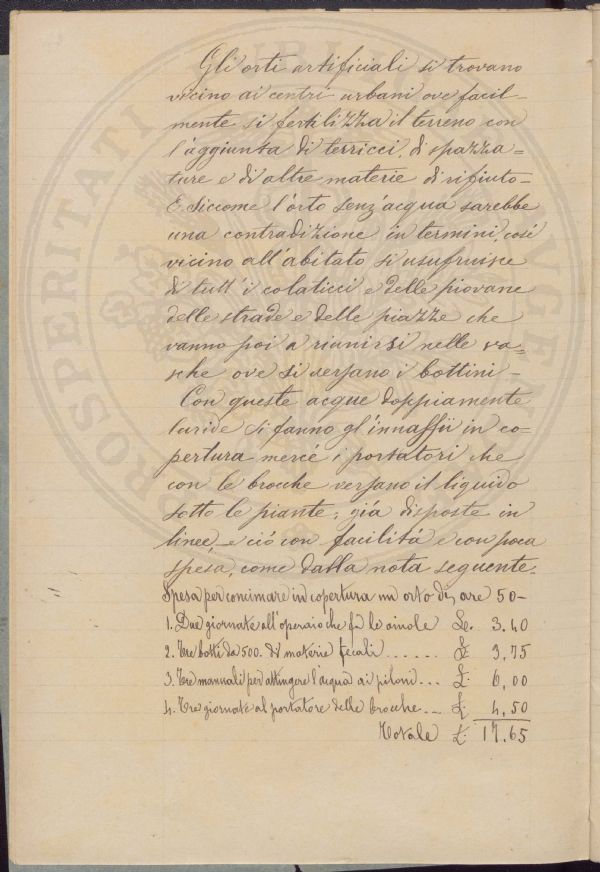 Gli orti artificiali si trovano
vicino ai centri urbani ove facil-
mente si fertilizza il terreno con
l'aggiunta di terricci, di spazza=
ture e di altre materie di rifiuto-
E siccome l'orto senz'acqua sarebbe
una contradizione in termini, così
vicino all'abitato si usufruisce
di tutt'i colaticci e delle piovane
delle strade e delle piazze che
vanno poi a riunirsi nelle va=
sche ove si versano i bottini-
Con queste acque doppiamente
luride si fanno gl'innaffii in co-
pertura mercé i portatori che
con le brocche versano il liquido
sotto le piante, già disposte in
linee, e ciò con facilità e con poca
spesa, come dalla nota seguente.
Spesa per concimare in copertura un orto di are 50-
1. Due giornate all'operaio che fa le aiuole £. 3.40
2. Tre botti da 500. di materie fecali ...... £. 3,75
3. Tre manuali per attingere l'acqua ai piloni... £. 6,00
4. Tre giornate al portatore delle brocche... £. 4,50
Totale £. 17.65
PROSPERITATI PUBLICAE AUGENDAE